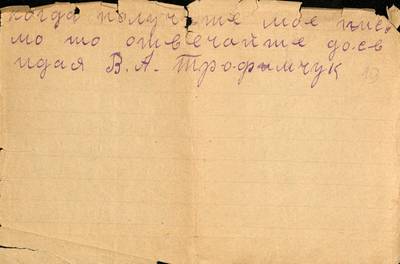 когда получите мое пись
мо то отвечайте досв
идая В. А. Трофимчук 19